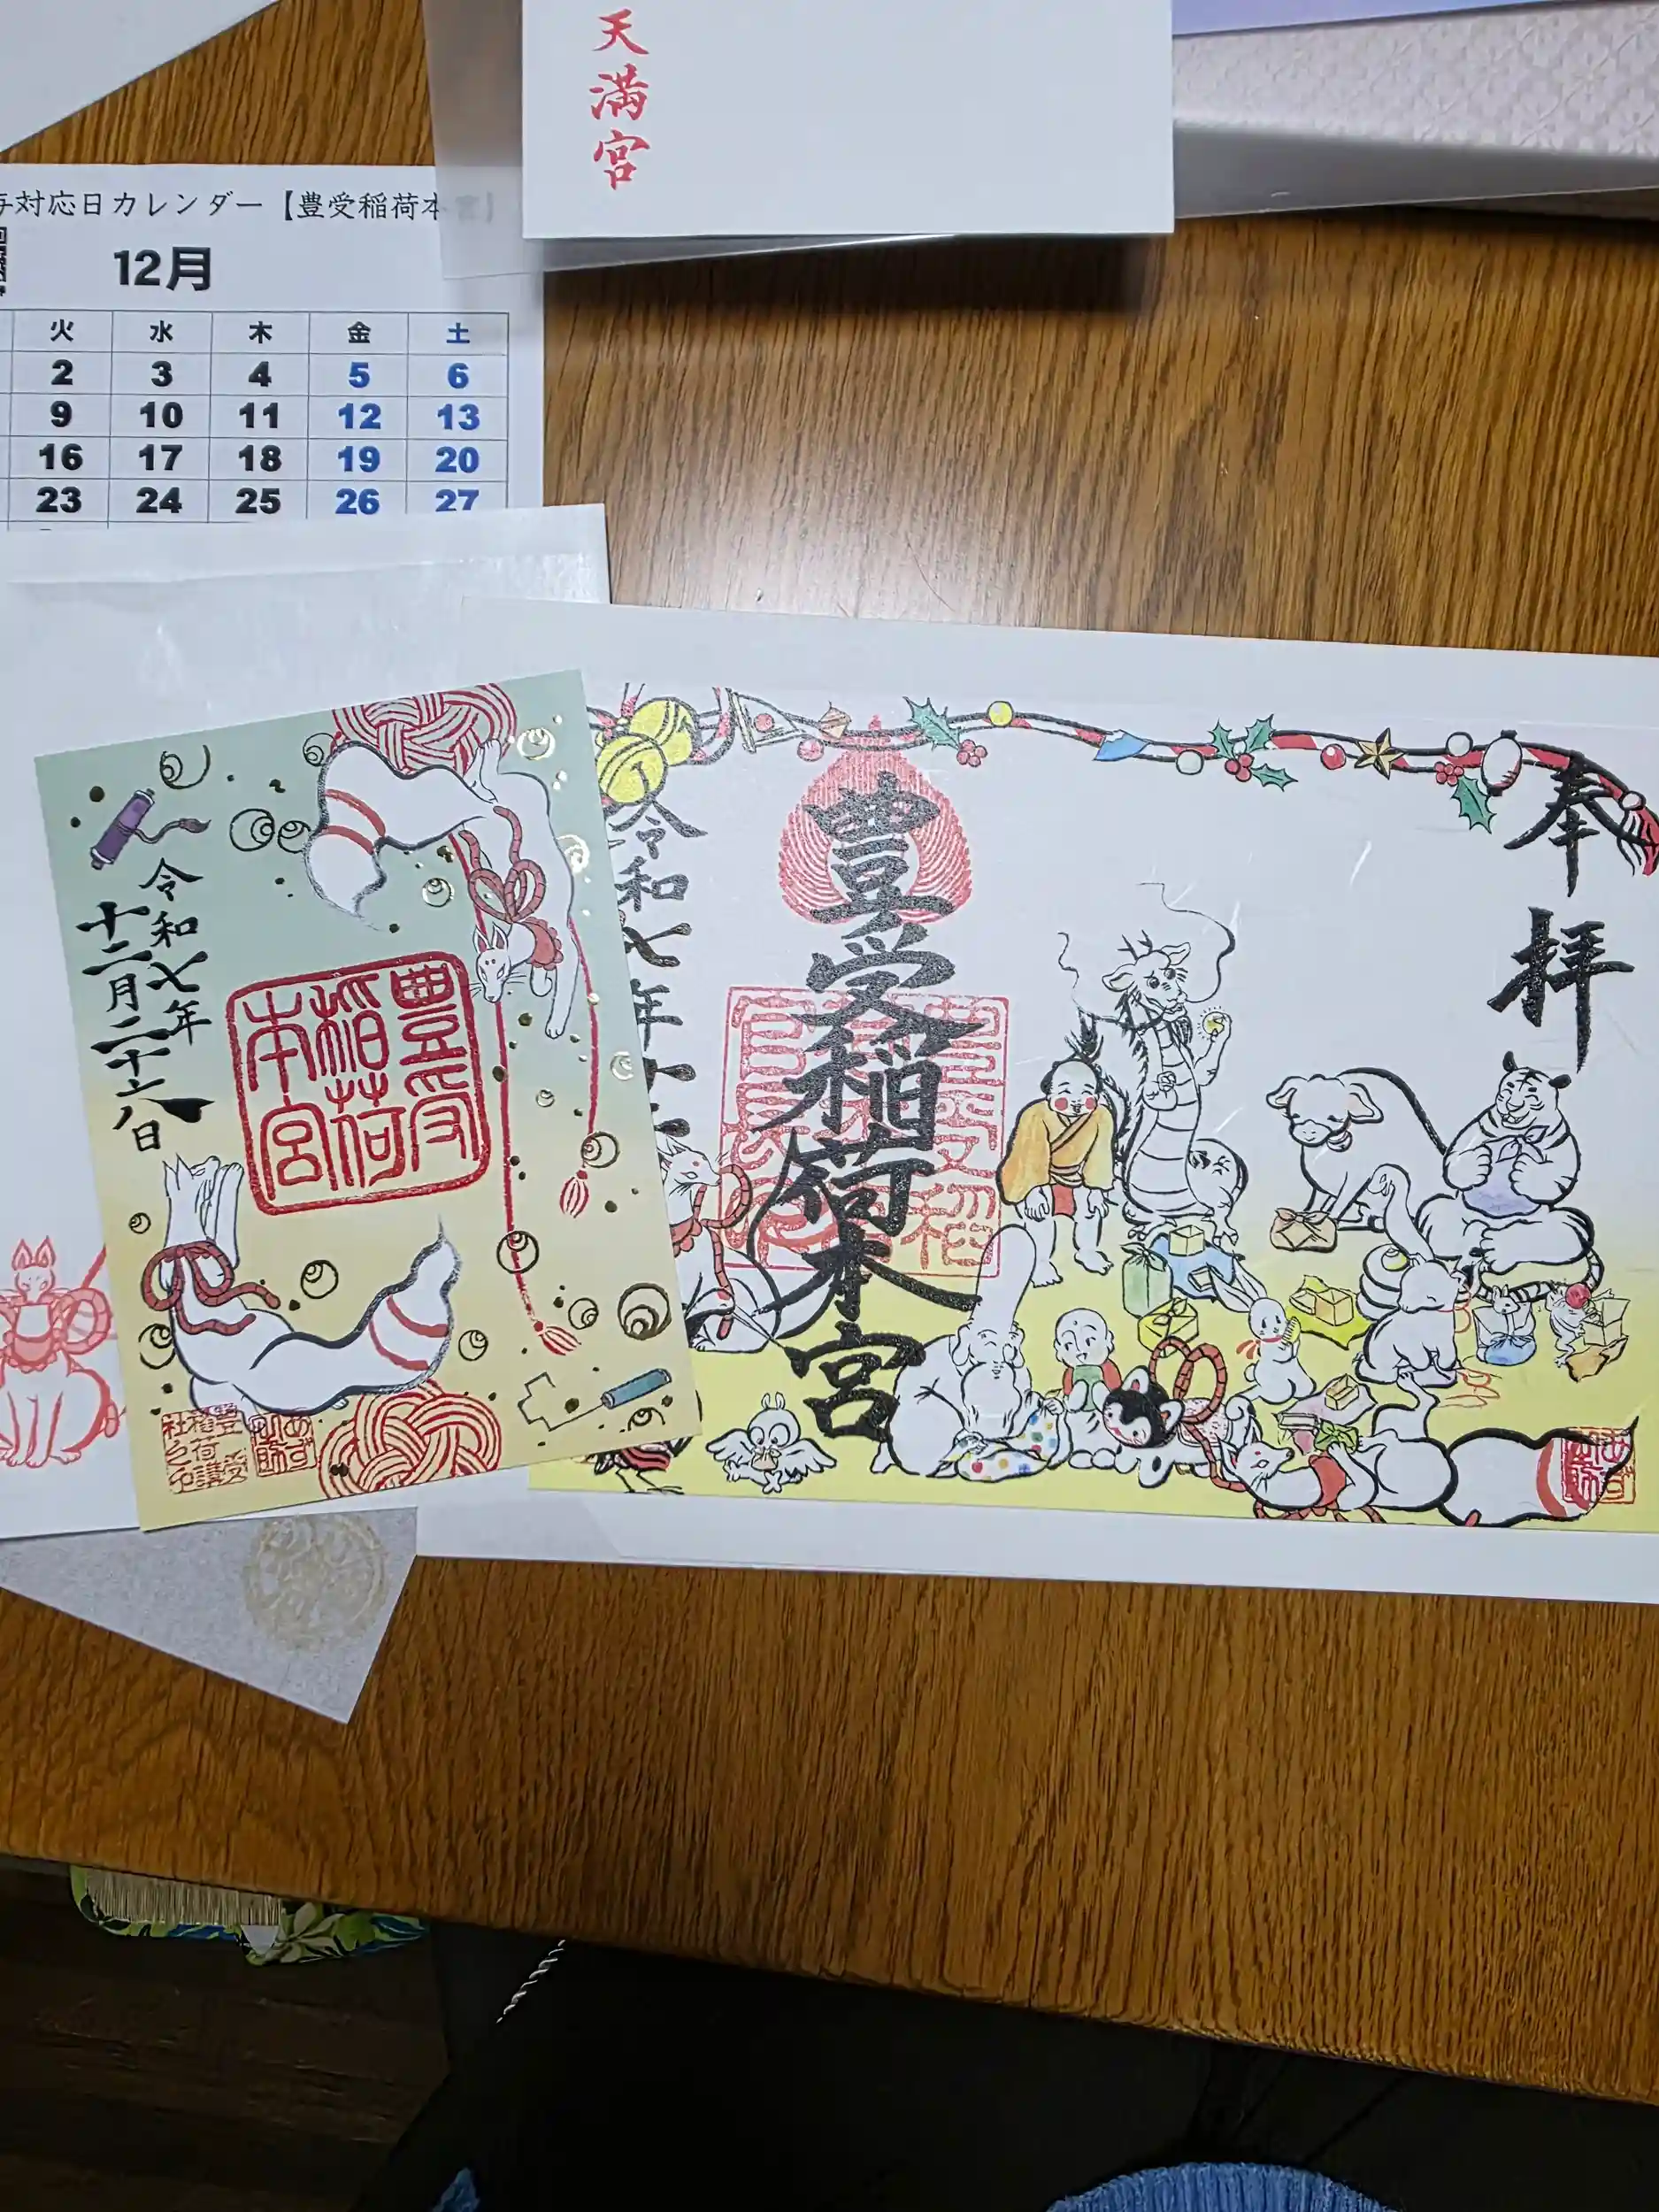 天満宮
対応日カレンダー【豊受稲荷本宮】
12月
火 水 木 金 土
2 3 4 5 6
9 10 11 12 13
16 17 18 19 20
23 24 25 26 27
奉拝
豊受稲荷本宮
令和七年十二
令和七年
十二月二十六日
豊受
稲荷
本宮
豊受
稲荷講
社之印